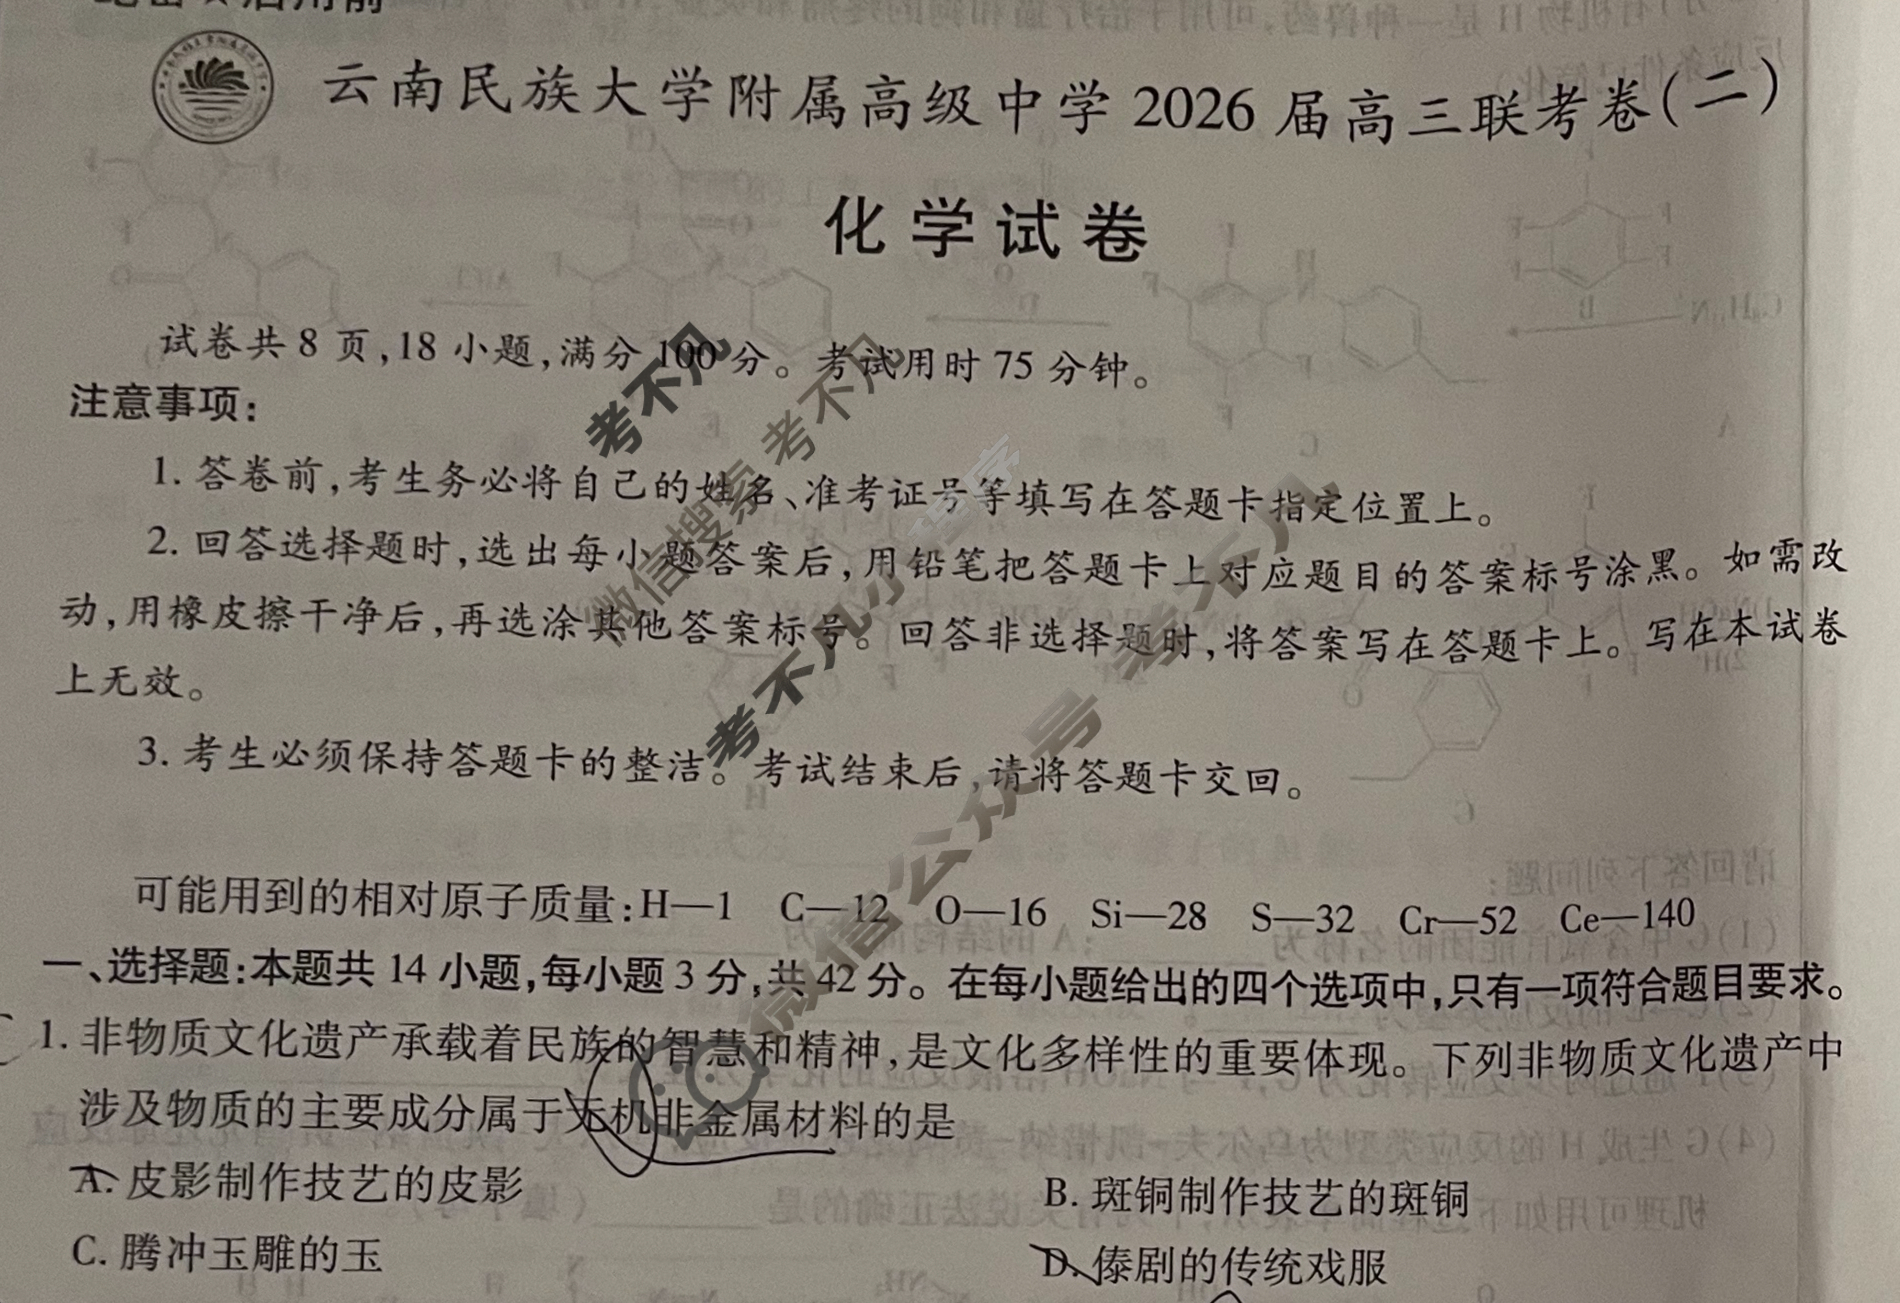 云南民族大学附属高级中学2026届高三联考卷(二)
化学试卷
试卷共8页,18小题,满分100分。考试用时75分钟。
注意事项:
1. 答卷前,考生务必将自己的姓名、准考证号等填写在答题卡指定位置上。
2. 回答选择题时,选出每小题答案后,用铅笔把答题卡上对应题目的答案标号涂黑。如需改
动,用橡皮擦干净后,再选涂其他答案标号。回答非选择题时,将答案写在答题卡上。写在本试卷
上无效。
3. 考生必须保持答题卡的整洁。考试结束后,请将答题卡交回。
可能用到的相对原子质量:H—1 C—12 O—16 Si—28 S—32 Cr—52 Ce—140
一、选择题:本题共14小题,每小题3分,共42分。在每小题给出的四个选项中,只有一项符合题目要求。
1. 非物质文化遗产承载着民族的智慧和精神,是文化多样性的重要体现。下列非物质文化遗产中
涉及物质的主要成分属于无机非金属材料的是
A. 皮影制作技艺的皮影
B. 斑铜制作技艺的斑铜
C. 腾冲玉雕的玉
D. 傣剧的传统戏服
考不凡
微信搜索 考不凡
考不凡小程序
微信公众号 考不凡